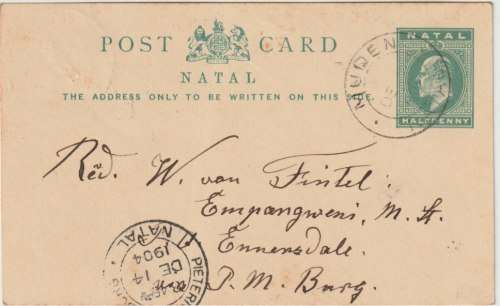 POST CARD
NATAL
THE ADDRESS ONLY TO BE WRITTEN ON THIS SIDE.
NATAL
HALFPENNY
MUDEN
DE
Revd. W. von Fintel.
Empangweni, M. St.
Ennersdale.
P. M. Burg.
PIETER
DE 14
1904
NATAL